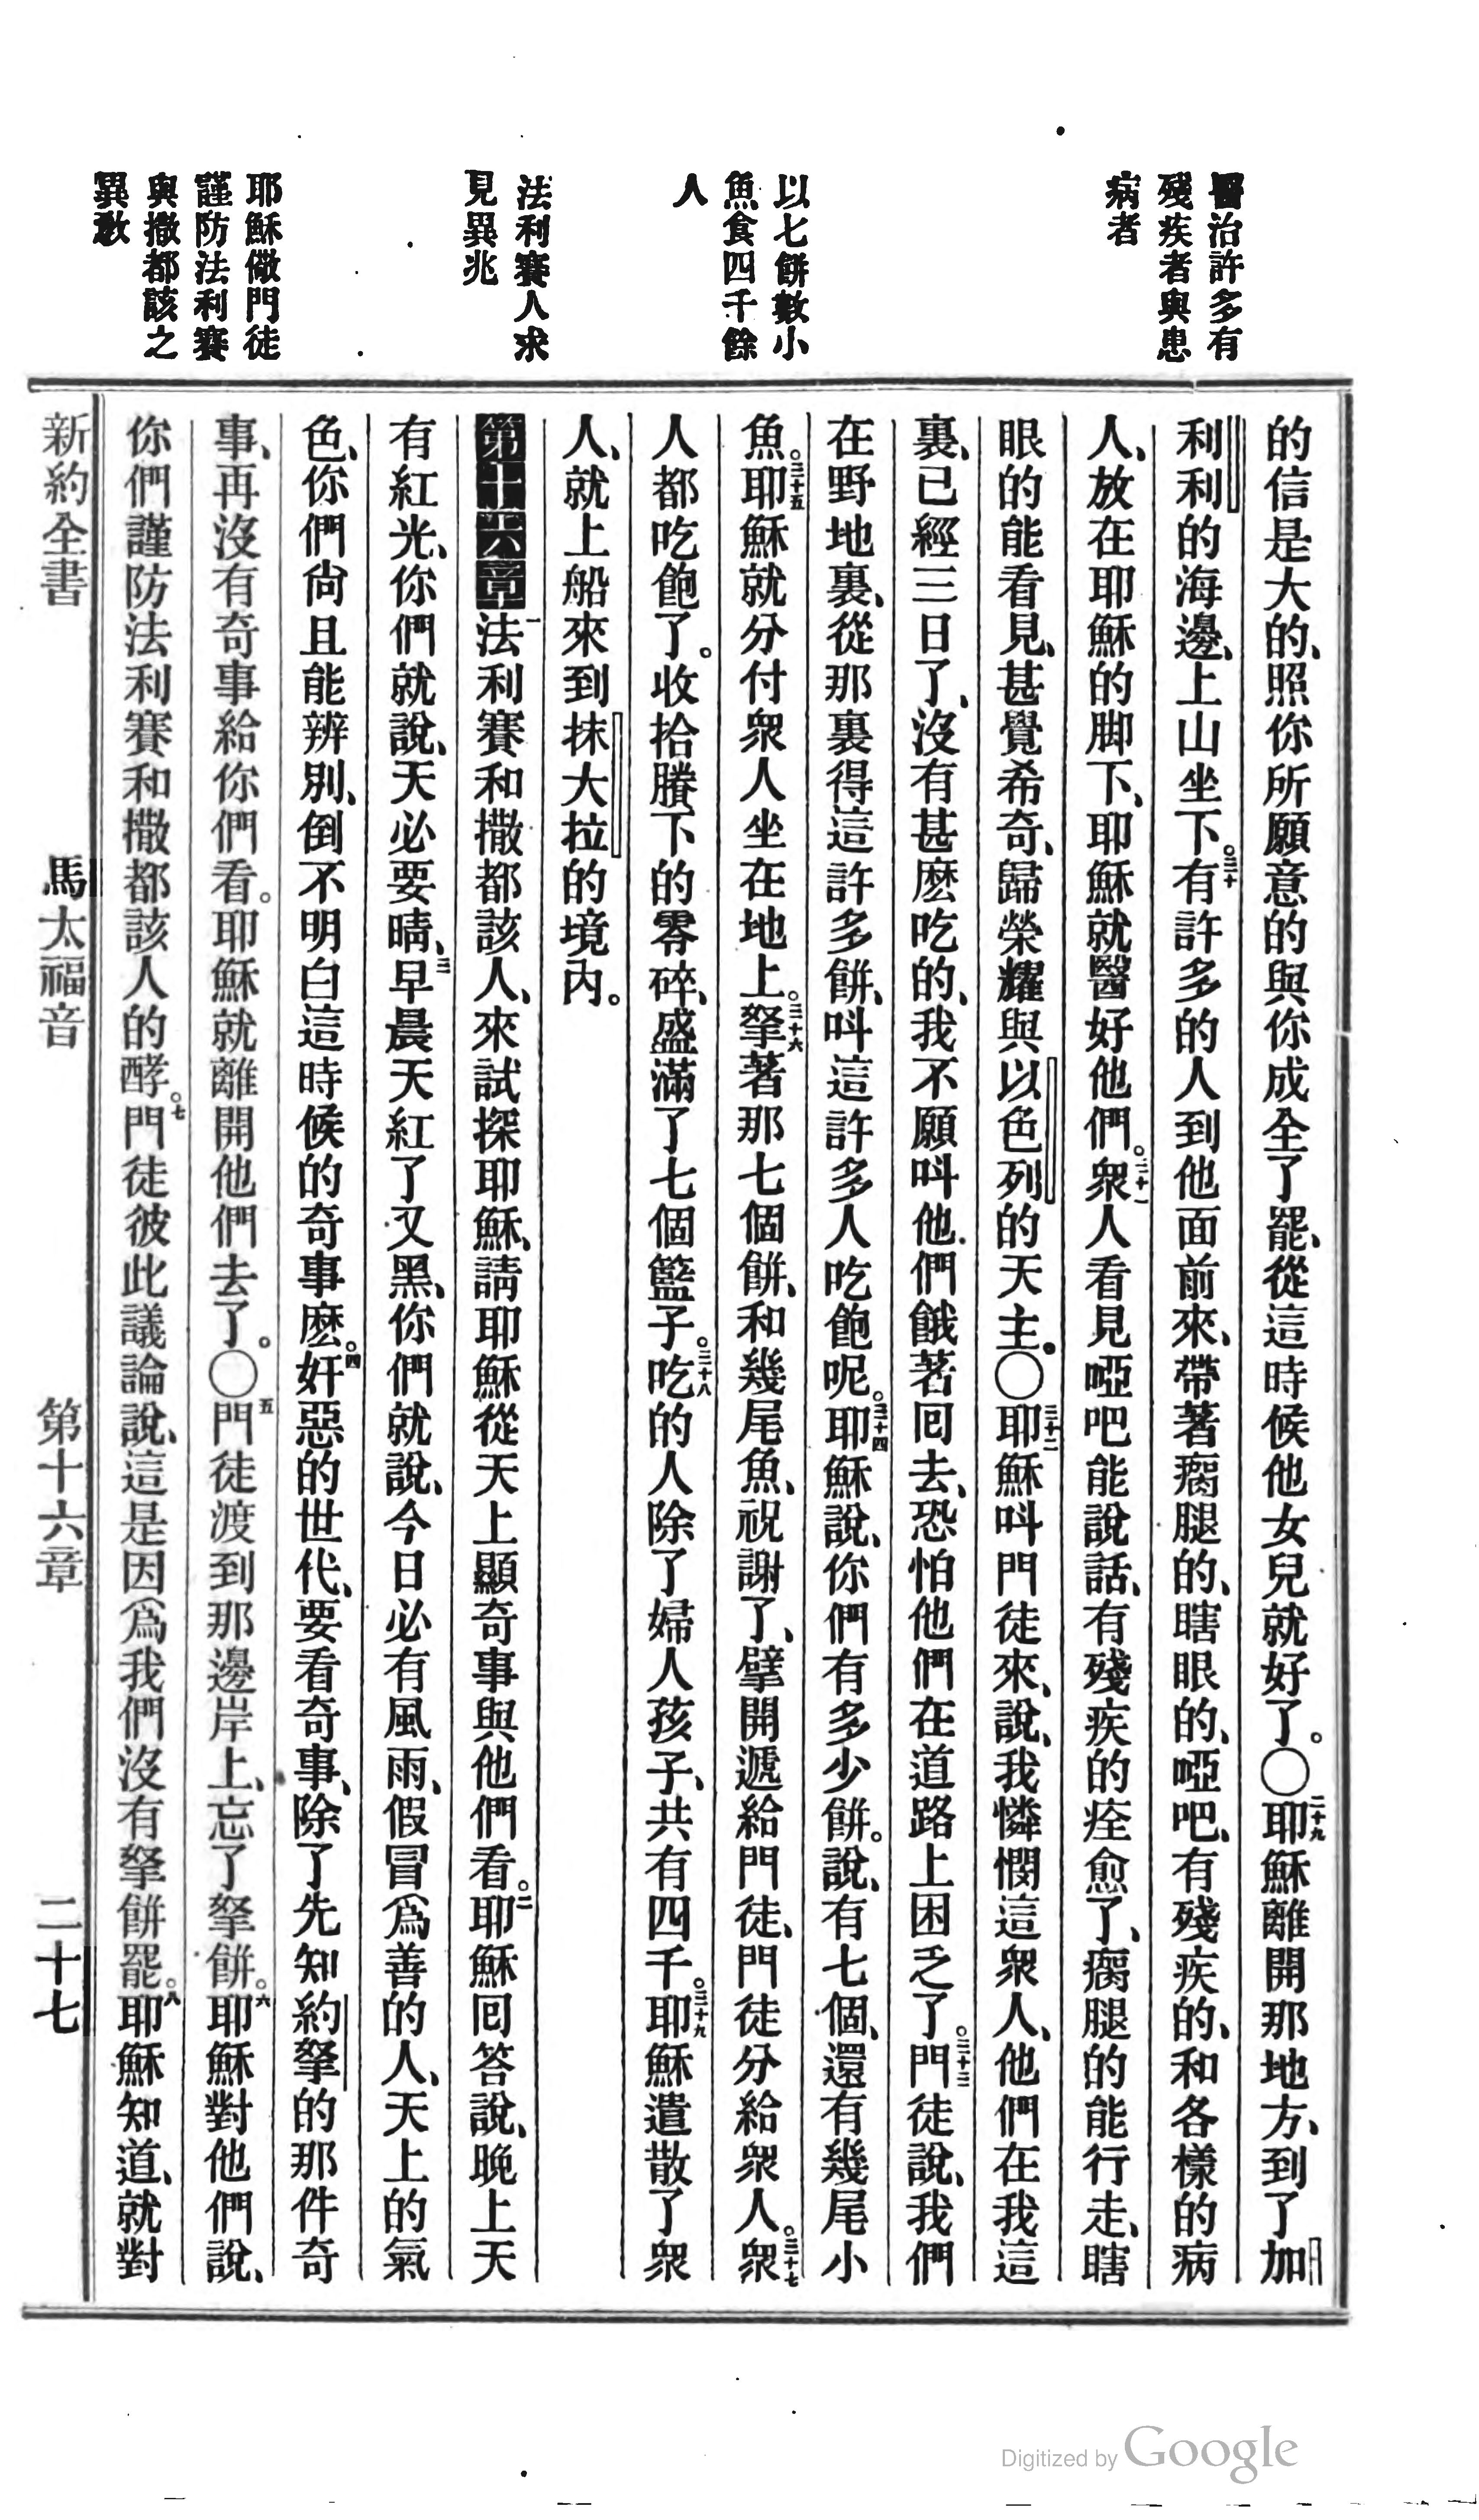 醫治許多有
殘疾者與患
病者
以七餅數小
魚食四千餘
人
法利賽人求
見異兆
耶穌儆門徒
謹防法利賽
與撒都該之
異教
的信是大的、照你所願意的與你成全了罷、從這時候他女兒就好了。〇二十九耶穌離開那地方、到了加
利利的海邊、上山坐下。三十有許多的人到他面前來、帶著瘸腿的、瞎眼的、啞吧、有殘疾的、和各樣的病
人、放在耶穌的脚下、耶穌就醫好他們。三十一衆人看見啞吧能說話、有殘疾的痊愈了、瘸腿的能行走、瞎
眼的能看見、甚覺希奇、歸榮耀與以色列的天主。〇三十二耶穌呌門徒來、說、我憐憫這衆人、他們在我這
裏、已經三日了、沒有甚麽吃的、我不願呌他們餓著回去、恐怕他們在道路上困乏了。三十三門徒說、我們
在野地裏、從那裏得這許多餅、呌這許多人吃飽呢。三十四耶穌說、你們有多少餅。說、有七個、還有幾尾小
魚。三十五耶穌就分付衆人坐在地上。三十六拏著那七個餅、和幾尾魚、祝謝了、擘開遞給門徒、門徒分給衆人。三十七衆
人都吃飽了。收拾賸下的零碎、盛滿了七個籃子。三十八吃的人除了婦人孩子、共有四千。三十九耶穌遣散了衆
人、就上船來到抹大拉的境內。
第十六章一法利賽和撒都該人、來試探耶穌、請耶穌從天上顯奇事與他們看。二耶穌回答說、晚上天
有紅光、你們就說、天必要晴、三早晨天紅了又黑、你們就說、今日必有風雨、假冒爲善的人、天上的氣
色、你們尙且能辨別、倒不明白這時候的奇事麽。四奸惡的世代、要看奇事、除了先知約拏的那件奇
事、再沒有奇事給你們看。耶穌就離開他們去了。〇五門徒渡到那邊岸上、忘了拏餅。六耶穌對他們說、
你們謹防法利賽和撒都該人的酵。七門徒彼此議論說、這是因爲我們沒有拏餅罷。八耶穌知道、就對
新約全書 馬太福音 第十六章 二十七
Digitized by Google